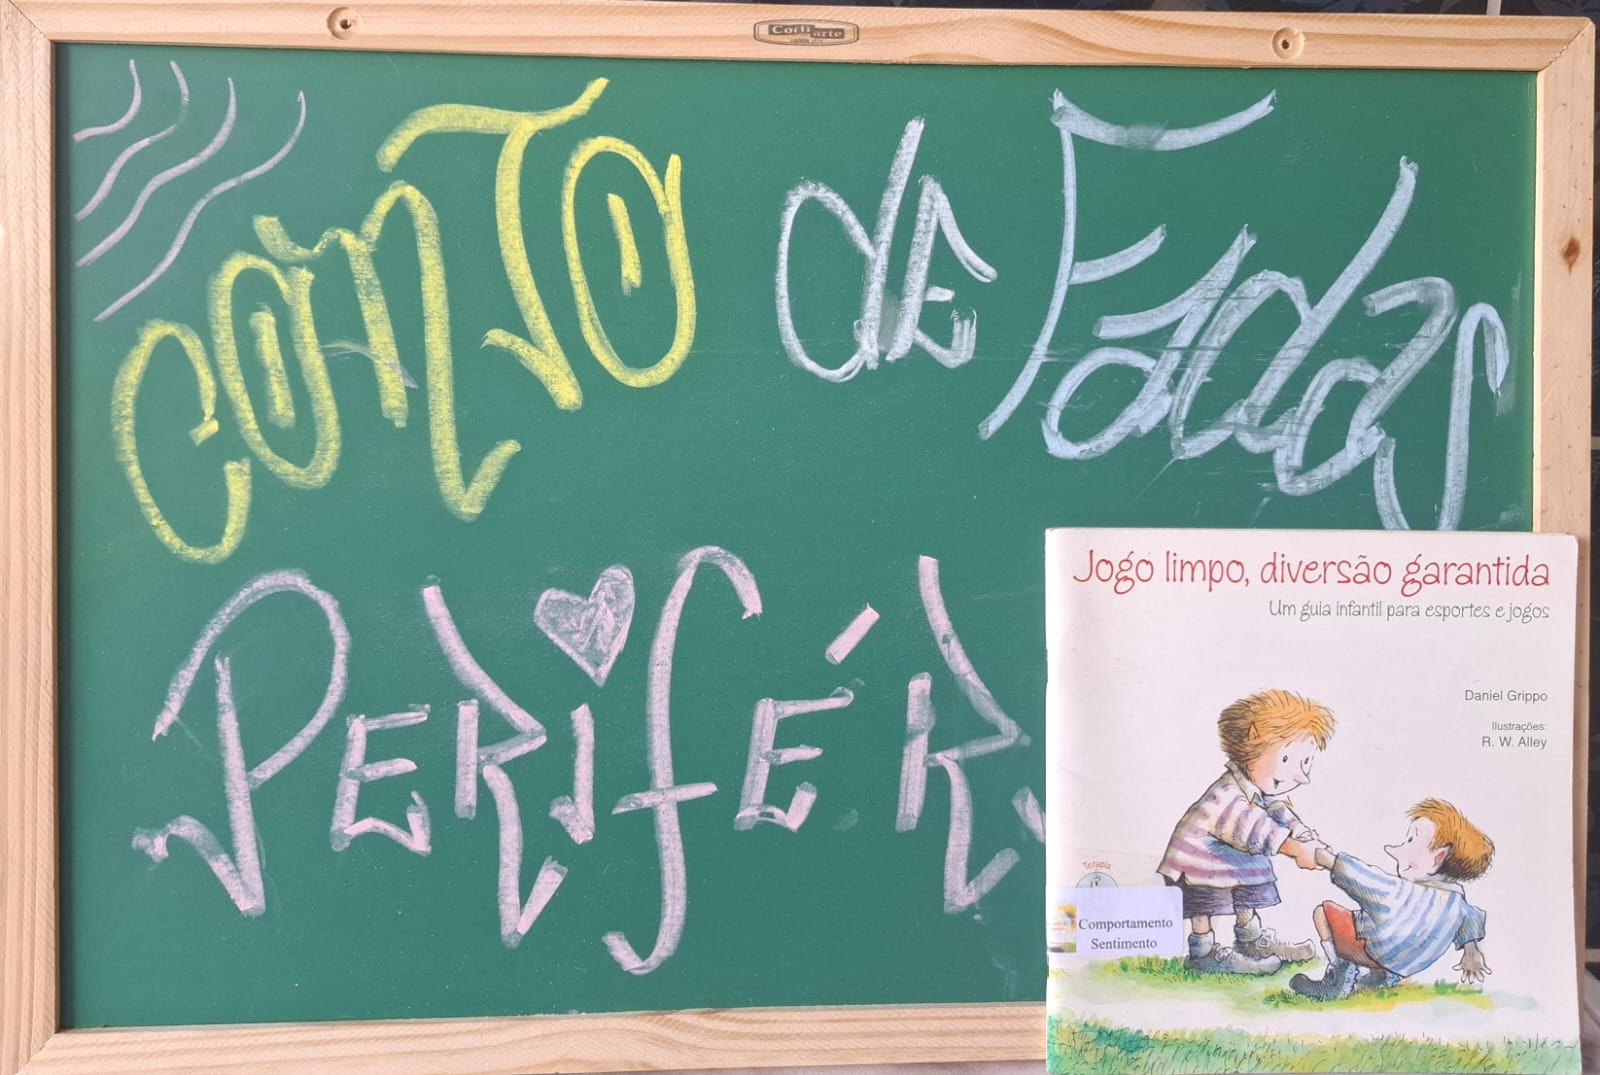 Corti arte
CONTO de Fadas
PERIFÉR
Jogo limpo, diversão garantida
Um guia infantil para esportes e jogos
Daniel Grippo
Ilustrações:
R. W. Alley
Terapia
Comportamento
Sentimento